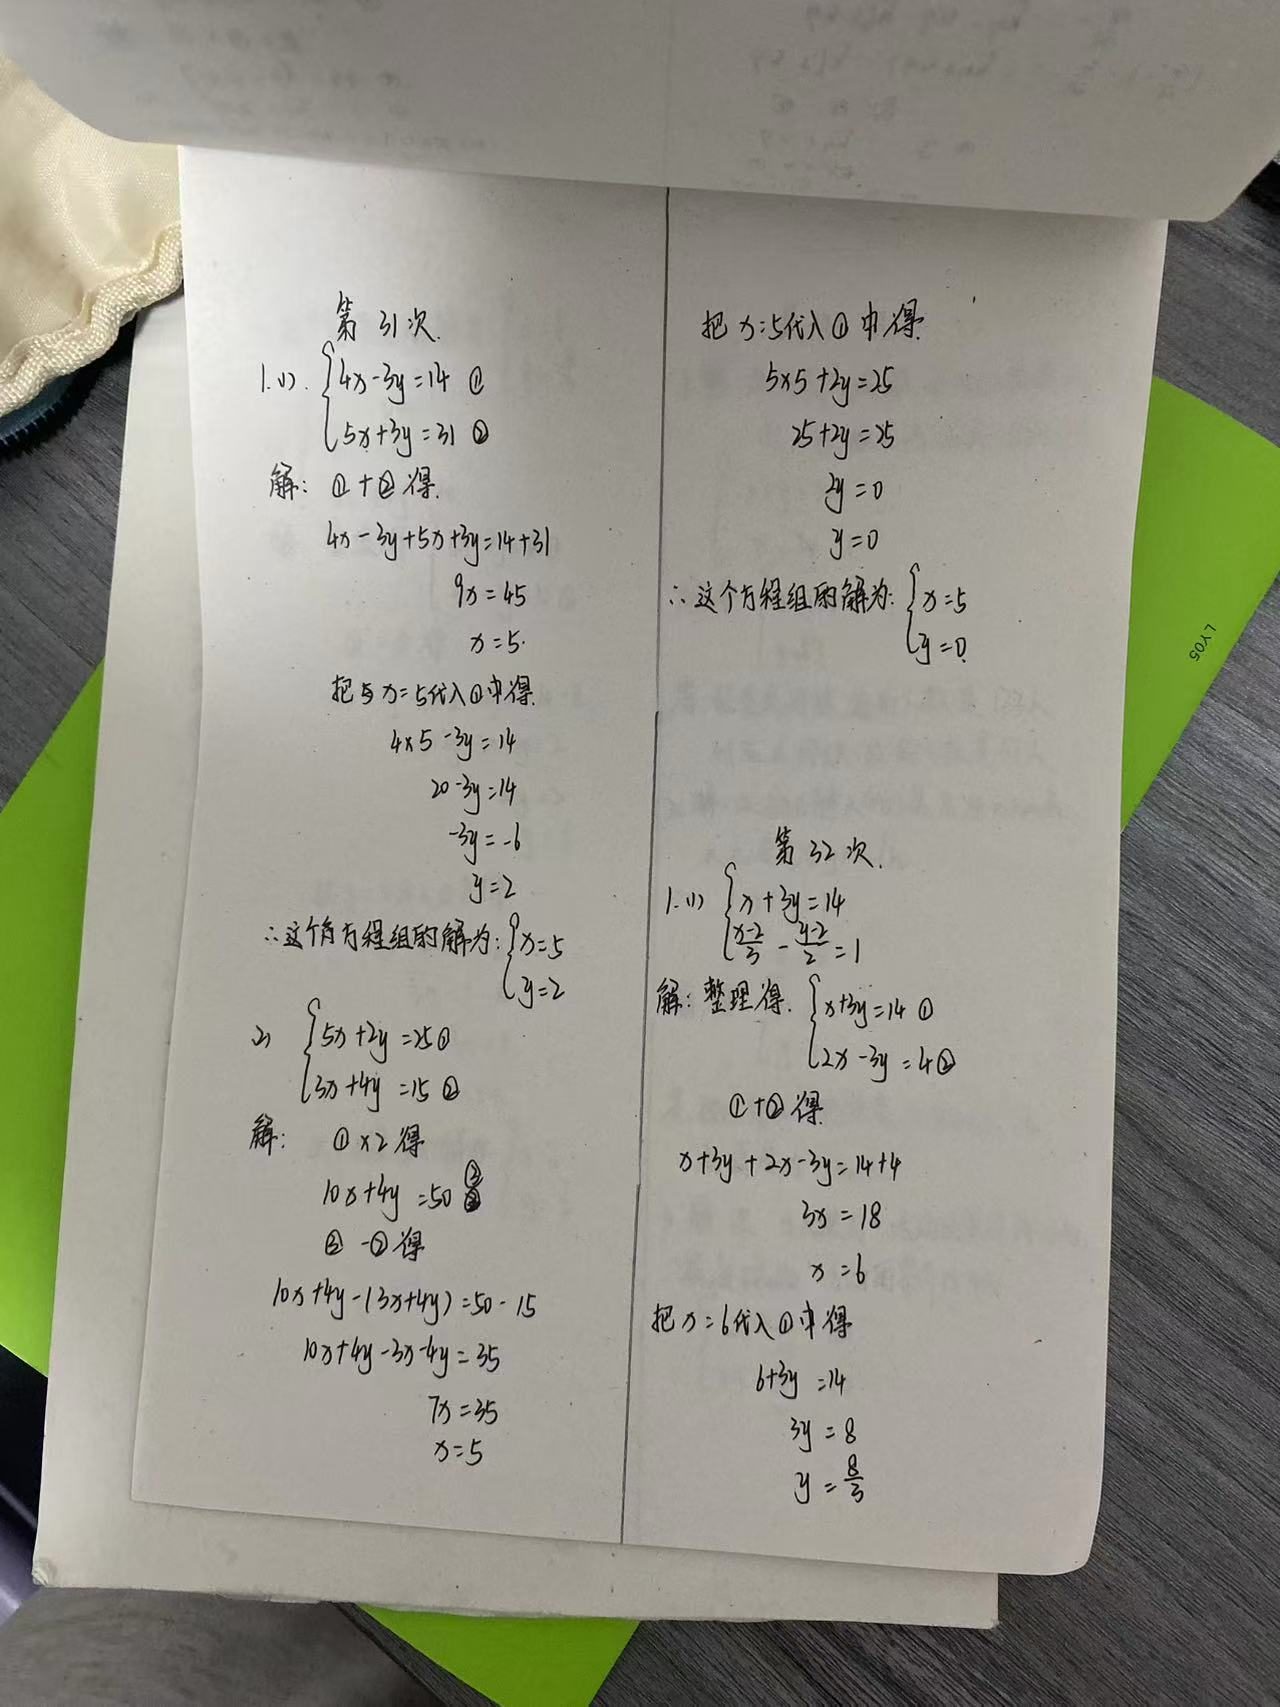 第31次.
1.(1). {4x-3y=14 ①
5x+3y=31 ②
解: ①+②得.
4x-3y+5x+3y=14+31
9x=45
x=5.
把x=5代入①中得.
4×5-3y=14
20-3y=14
-3y=-6
y=2
∴这个方程组的解为:{x=5
y=2
2) {5x+2y=25①
3x+4y=15②
解: ①×2得
10x+4y=50 ③
③-②得
10x+4y-(3x+4y)=50-15
10x+4y-3x-4y=35
7x=35
x=5
把x=5代入①中得.
5×5+2y=25
25+2y=25
2y=0
y=0
∴这个方程组的解为:{x=5
y=0.
第32次.
1.(1) {x+3y=14
(x-2)/3-(y-2)/2=1
解:整理得. {x+3y=14①
2x-3y=4②
①+②得.
x+3y+2x-3y=14+4
3x=18
x=6
把x=6代入①中得
6+3y=14
3y=8
y=8/3
LY05